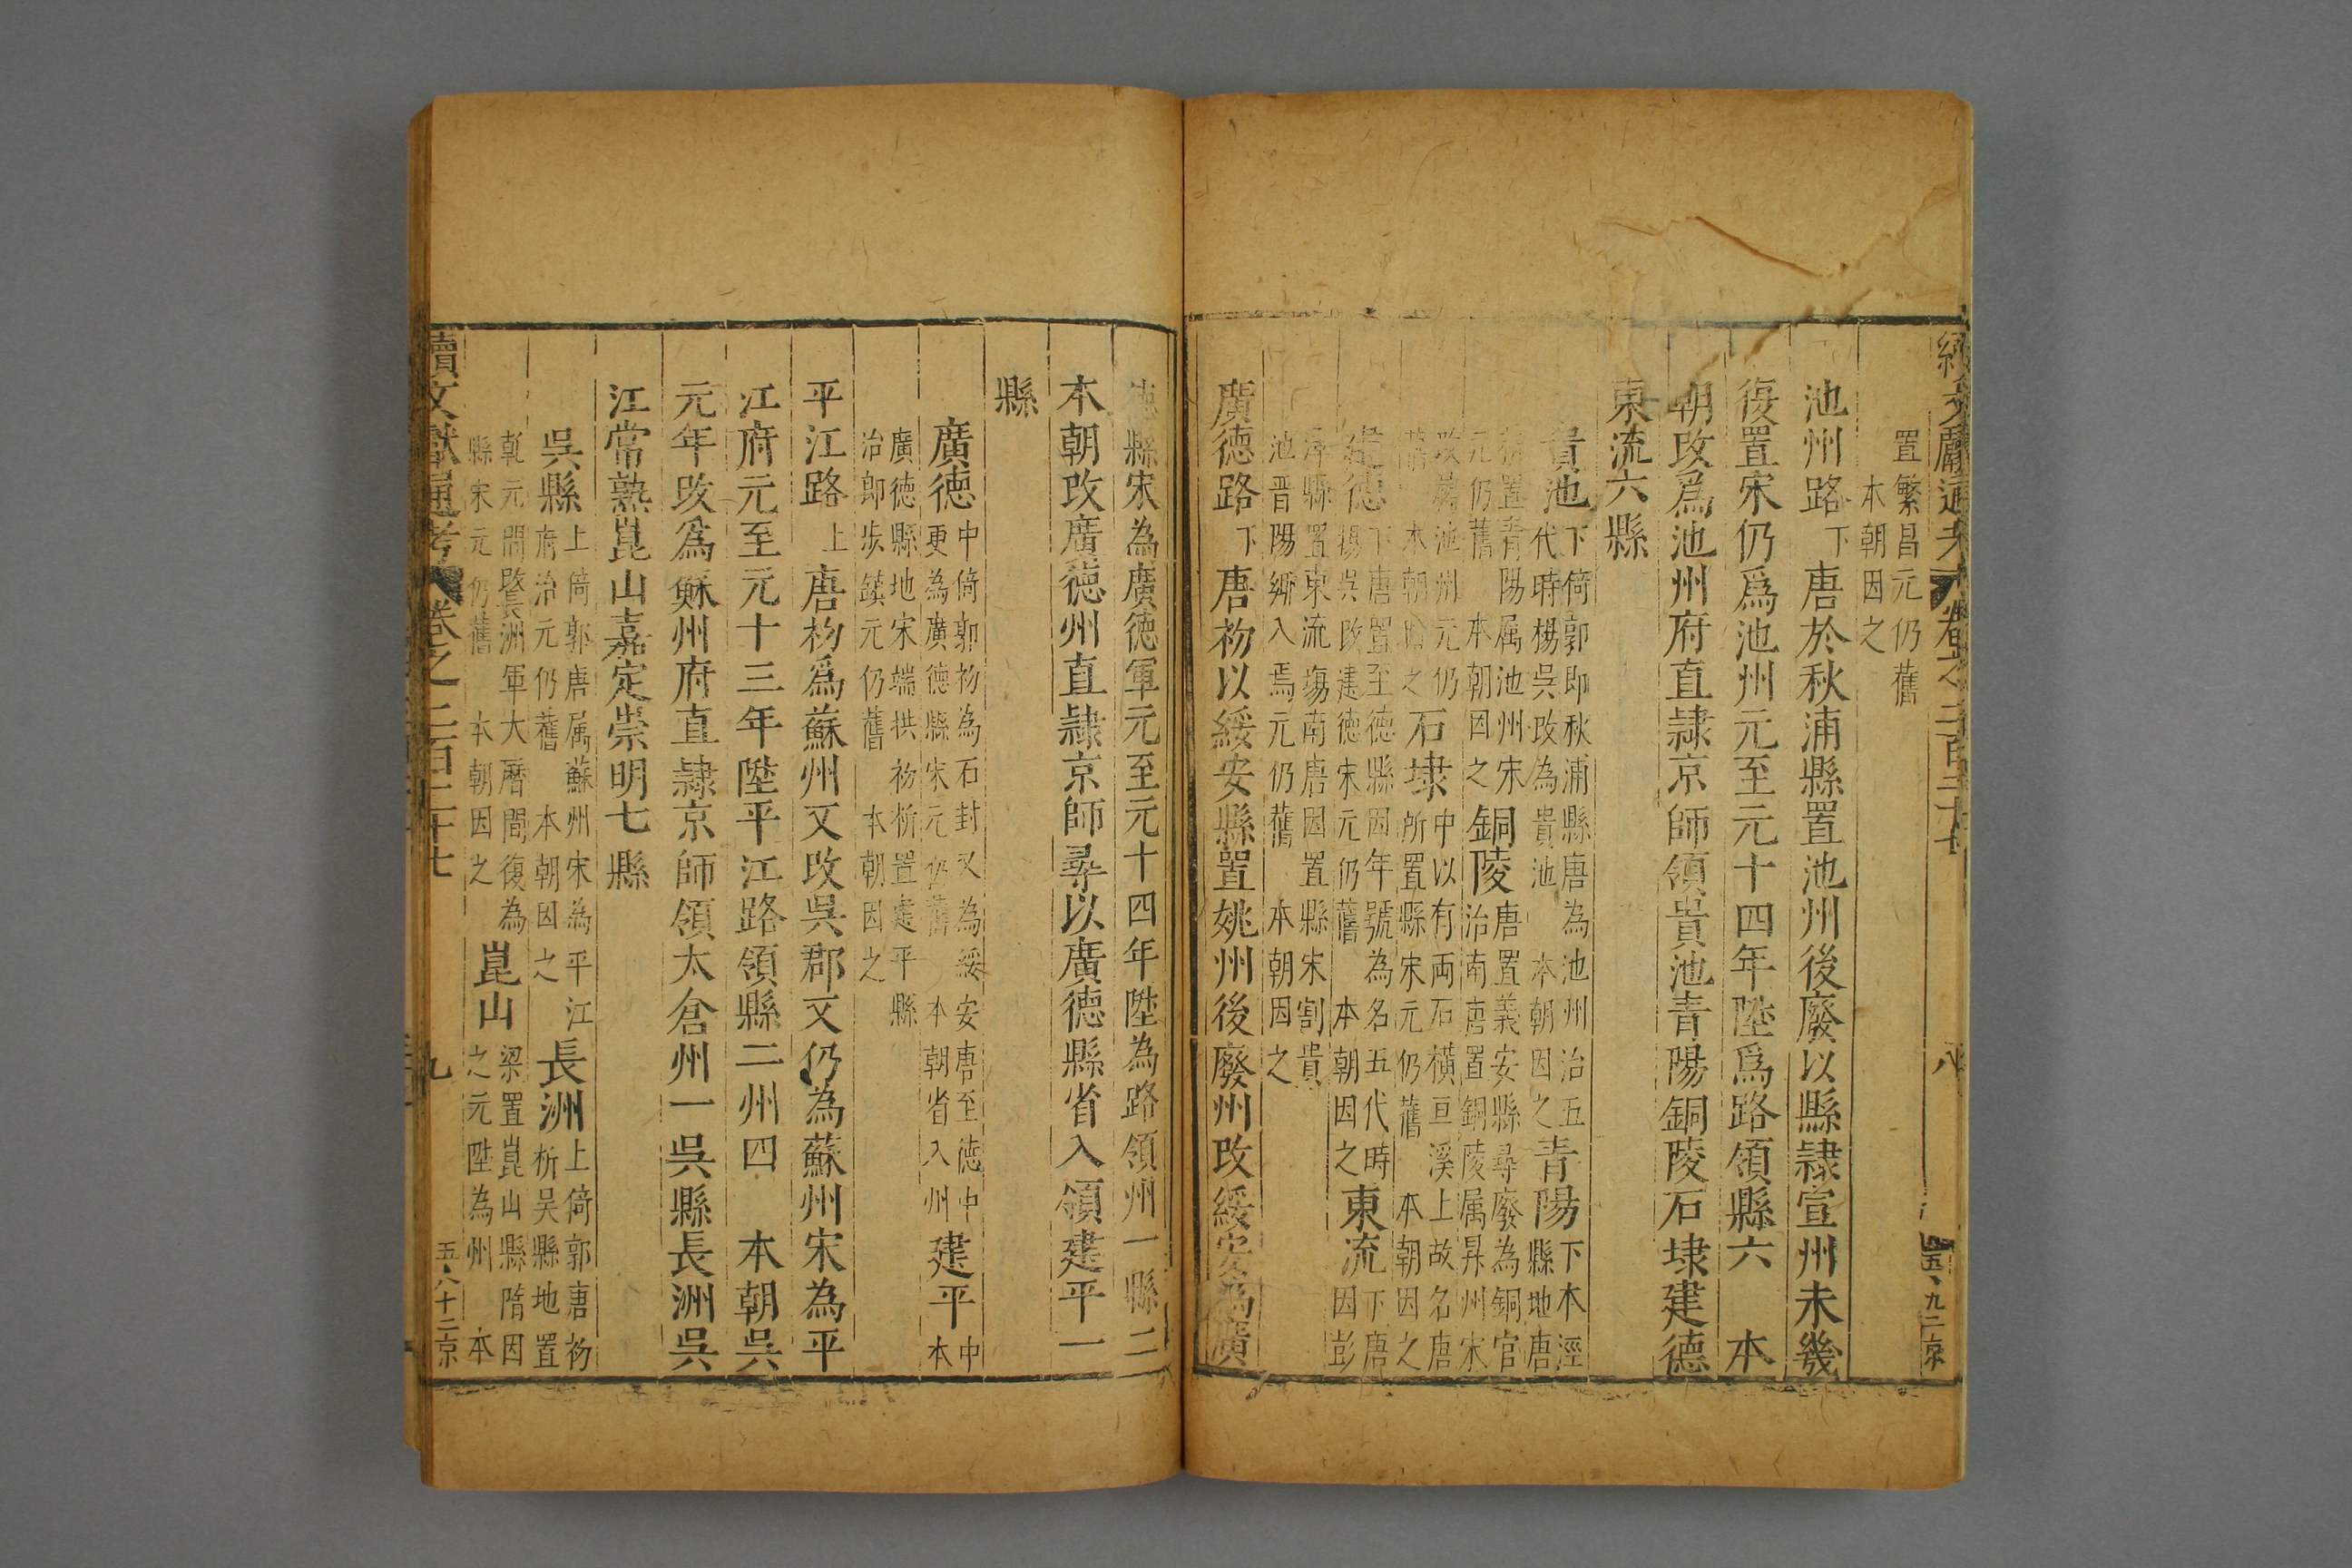 續文獻通考 卷之二百二十七 八
置繁昌元仍舊
本朝因之
池州路下唐於秋浦縣置池州後廢以縣隷宣州未幾
復置宋仍爲池州元至元十四年陞爲路領縣六 本
朝改爲池州府直隷京師領貴池青陽銅陵石埭建德
東流六縣
貴池下倚郭即秋浦縣唐為池州治五
代時楊吳改為貴池 本朝因之青陽下本涇
縣地唐
析置青陽属池州宋
元仍舊 本朝因之銅陵唐置義安縣尋廢為銅官
治南唐置銅陵属昇州宋
改属池州元仍
舊 本朝因之石埭中以有両石橫亘溪上故名唐
所置縣宋元仍舊 本朝因之
建德下唐置至德縣因年號為名五代時
楊吳改建德宋元仍舊 本朝因之東流下唐
因彭
澤縣置東流塲南唐因置縣宋割貴
池晋陽鄉入焉元仍舊 本朝因之
廣德路下唐初以綏安縣置姚州後廢州改綏安為廣
五九二京
德縣宋為廣德軍元至元十四年陞為路領州一縣二
本朝改廣德州直隷京師尋以廣德縣省入領建平一
縣
廣德中倚郭初為石封又為綏安唐至德中
更為廣德縣宋元仍舊 本朝省入州建平中
本
廣德縣地宋端拱初析置建平縣
治郎步鎮元仍舊 本朝因之
平江路上唐初爲蘇州又改吳郡又仍為蘇州宋為平
江府元至元十三年陞平江路領縣二州四 本朝吳
元年改爲蘇州府直隷京師領太倉州一吳縣長洲吳
江常熟崑山嘉定崇明七縣
吳縣上倚郭唐属蘇州宋為平江
府治元仍舊 本朝因之長洲上倚郭唐初
析吳縣地置
乾元間改長洲軍大曆間復為
縣宋元仍舊 本朝因之崑山梁置崑山縣隋因
之元陞為州 本
續文獻通考 卷之二百二十七 九
五八十二京